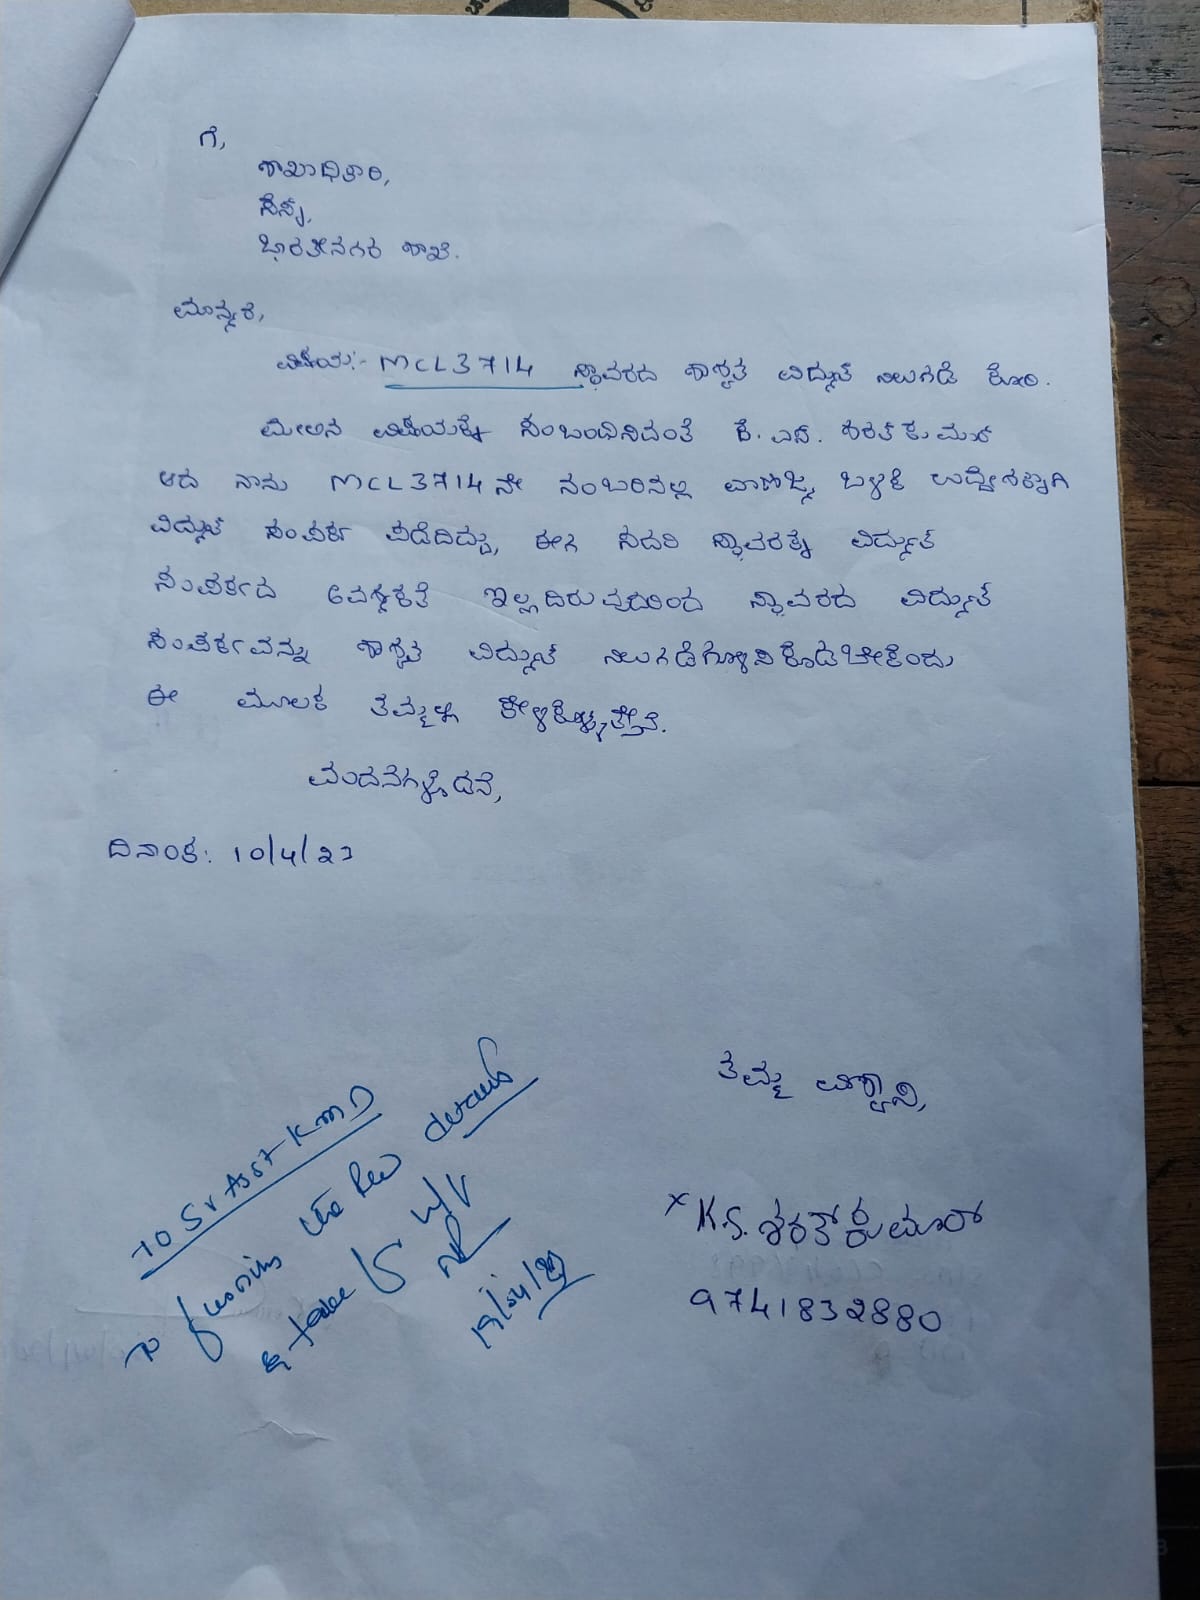 ಗೆ,
ಶಾಖಾಧಿಕಾರಿ,
ಸೆಸ್ಕ್,
ಭಾರತೀನಗರ ಶಾಖೆ.
ಮಾನ್ಯರೆ,
ವಿಷಯ:- MCL3714 ಸ್ಥಾವರದ ಶಾಶ್ವತ ವಿದ್ಯುತ್ ನಿಲುಗಡೆ ಕೋರಿ.
ಮೇಲಿನ ವಿಷಯಕ್ಕೆ ಸಂಬಂಧಿಸಿದಂತೆ ಕೆ. ಎಸ್. ಶರತ್ ಕುಮಾರ್
ಆದ ನಾನು MCL3714 ನೇ ನಂಬರಿನಲ್ಲಿ ವಾಣಿಜ್ಯ ಬಳಕೆ ಉದ್ದೇಶಕ್ಕಾಗಿ
ವಿದ್ಯುತ್ ಸಂಪರ್ಕ ಪಡೆದಿದ್ದು, ಈಗ ಸದರಿ ಸ್ಥಾವರಕ್ಕೆ ವಿದ್ಯುತ್
ಸಂಪರ್ಕದ ಅವಶ್ಯಕತೆ ಇಲ್ಲದಿರುವುದರಿಂದ ಸ್ಥಾವರದ ವಿದ್ಯುತ್
ಸಂಪರ್ಕವನ್ನು ಶಾಶ್ವತ ವಿದ್ಯುತ್ ನಿಲುಗಡೆಗೊಳಿಸಿಕೊಡಬೇಕೆಂದು
ಈ ಮೂಲಕ ತಮ್ಮಲ್ಲಿ ಕೇಳಿಕೊಳ್ಳುತ್ತೇನೆ.
ವಂದನೆಗಳೊಡನೆ,
ದಿನಾಂಕ: 10/4/23
ತಮ್ಮ ವಿಶ್ವಾಸಿ,
x K.S. ಶರತ್ ಕುಮಾರ್
9741832880
TO Sr Asst KMD
To details
& take
19/04/23